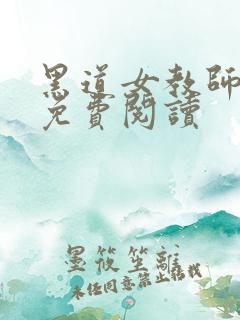 黑道女教師
免費閱讀
墨筱笙離
未经同意禁止搭载